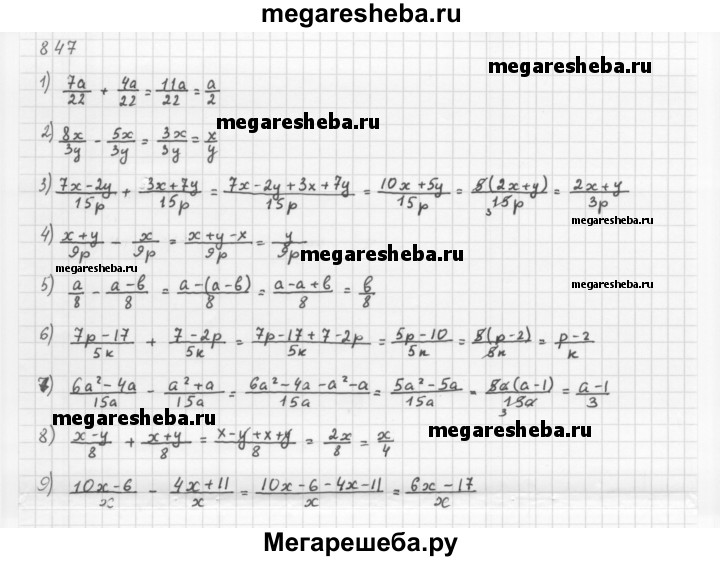 megaresheba.ru
847
1) 7a/22 + 4a/22 = 11a/22 = a/2
megaresheba.ru
megaresheba.ru
2) 8x/3y - 5x/3y = 3x/3y = x/y
3) (7x-2y)/15p + (3x+7y)/15p = (7x-2y+3x+7y)/15p = (10x+5y)/15p = 5(2x+y)/15p 3 = (2x+y)/3p
megaresheba.ru
4) (x+y)/9p - x/9p = (x+y-x)/9p = y/9p
megaresheba.ru
megaresheba.ru
5) a/8 - (a-b)/8 = (a-(a-b))/8 = (a-a+b)/8 = b/8
megaresheba.ru
6) (7p-17)/5k + (7-2p)/5k = (7p-17+7-2p)/5k = (5p-10)/5k = 5(p-2)/5k = (p-2)/k
7) (6a²-4a)/15a - (a²+a)/15a = (6a²-4a-a²-a)/15a = (5a²-5a)/15a = 5a(a-1)/15a 3 = (a-1)/3
megaresheba.ru
megaresheba.ru
8) (x-y)/8 + (x+y)/8 = (x-y+x+y)/8 = 2x/8 = x/4
9) (10x-6)/x - (4x+11)/x = (10x-6-4x-11)/x = (6x-17)/x
Мегарешеба.ру